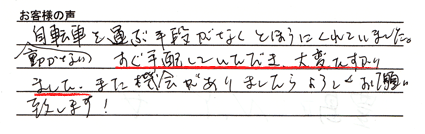 お客様の声
自転車を運ぶ手段がなくとほうにくれていました。
(動かない) すぐ手配していただき、大変たすかり
ました。また機会がありましたらよろしくお願い
致します!